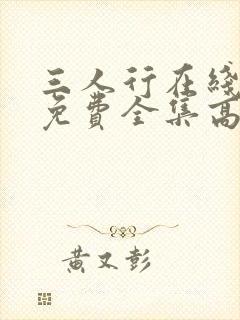 三人行在线
免费全集高
黄又彭